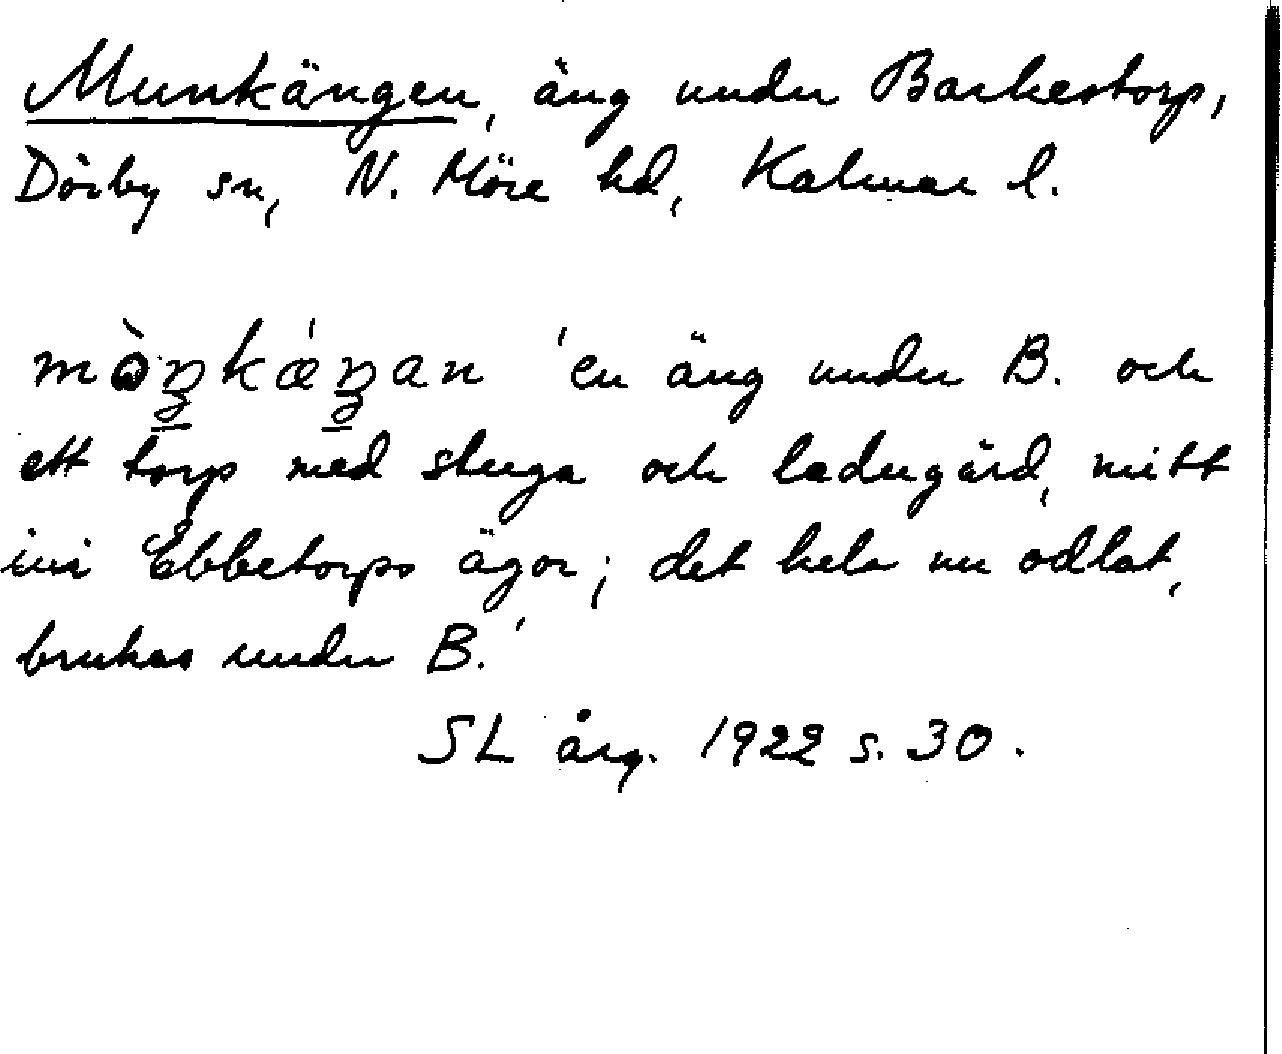 Munkängen, äng under Barkestorp,
Dörby sn, N. Möre hd, Kalmar l.
mòŋkǽŋan 'en äng under B. och
ett torp med stuga och ladugård, mitt
ini Ebbetorps ägor; det hela nu odlat,
brukas under B.'
SL årg. 1922 s. 30.